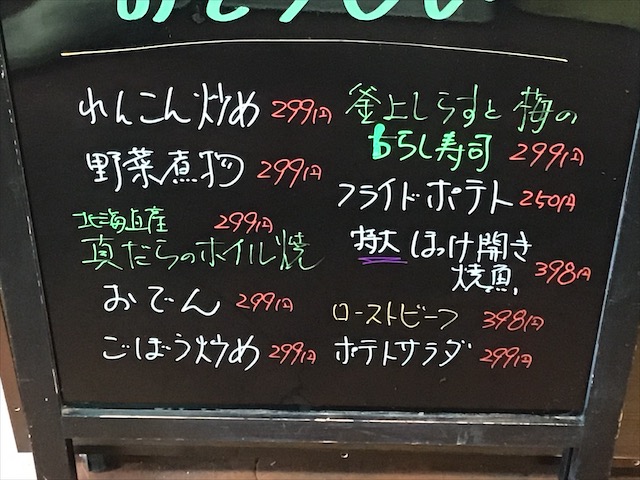 れんこん炒め 299円
野菜煮物 299円
北海道産 299円
真だらのホイル焼
おでん 299円
ごぼう炒め 299円
釜上しらすと梅の
ちらし寿司 299円
フライドポテト 250円
特大 ほっけ開き
焼魚 398円
ローストビーフ 398円
ポテトサラダ 299円